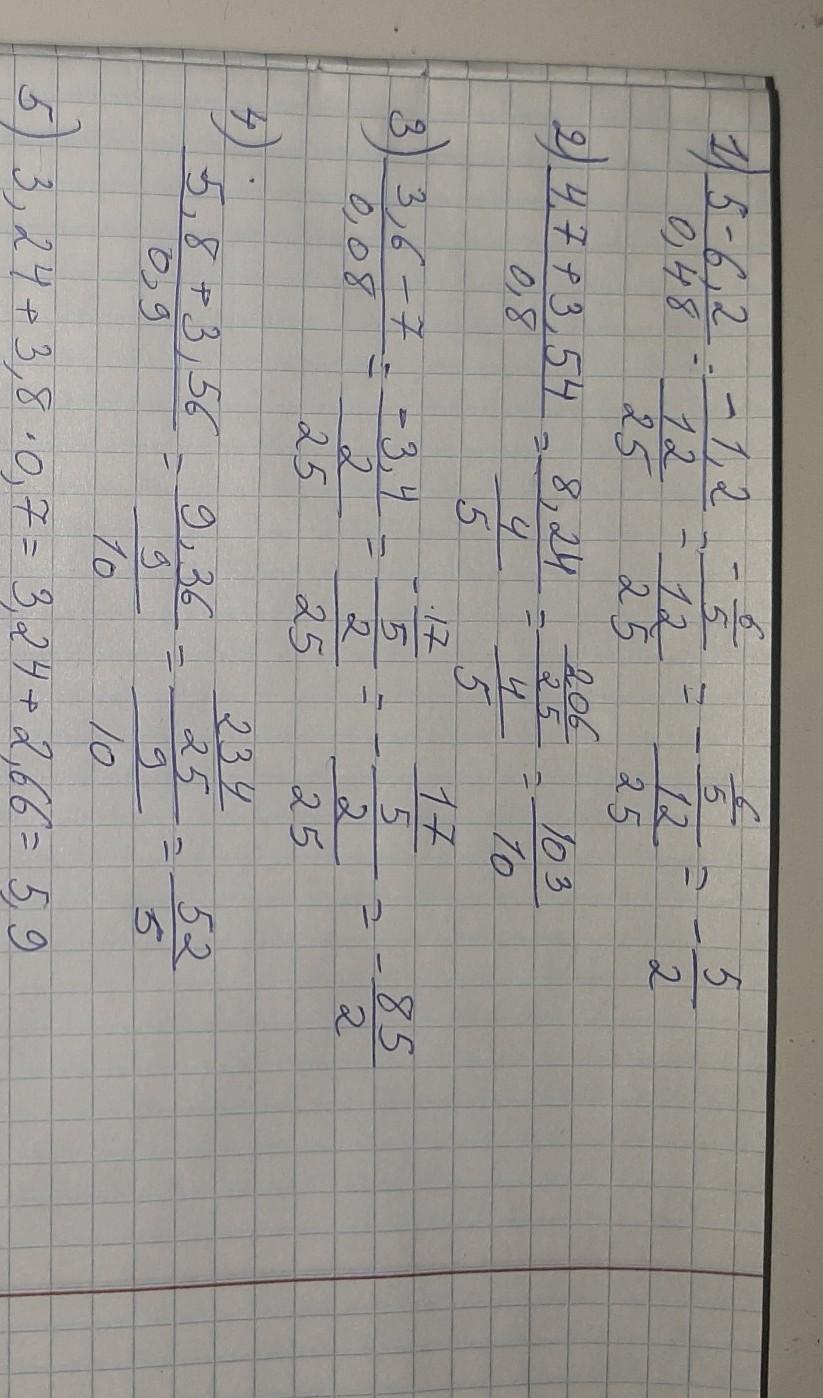 1) 5-6,2/0,48 = -1,2/(12/25) = -(6/5)/(12/25) = -(6/5)/(12/25) = -5/2
2) 4,7+3,54/0,8 = 8,24/(4/5) = (206/25)/(4/5) = 103/10
3) 3,6-7/0,08 = -3,4/(2/25) = -(17/5)/(2/25) = -(17/5)/(2/25) = -85/2
4) 5,8+3,56/0,9 = 9,36/(9/10) = (234/25)/(9/10) = 52/5
5) 3,24+3,8·0,7=3,24+2,66=5,9